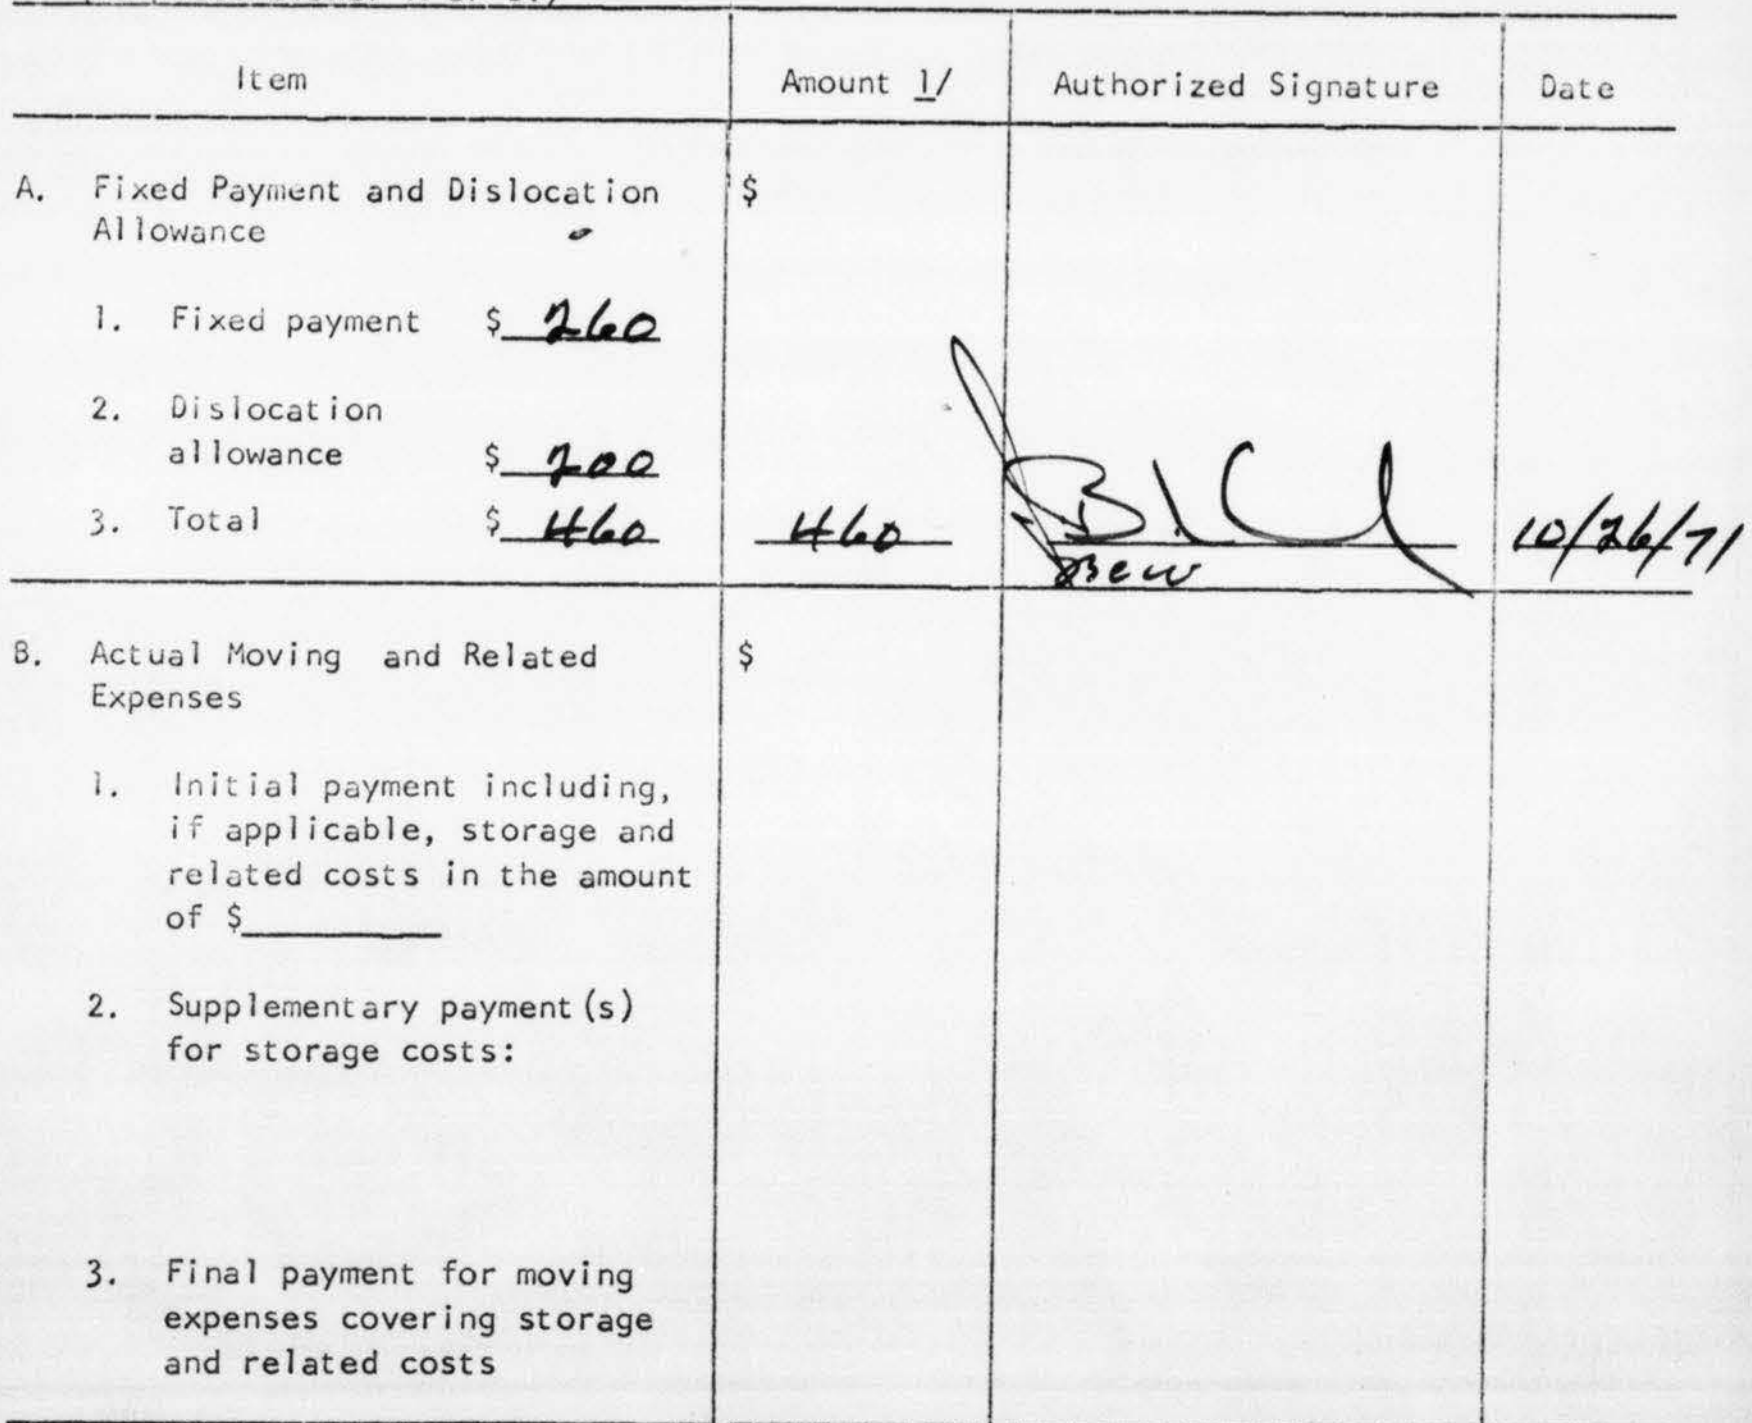 Item Amount 1/ Authorized Signature Date
A. Fixed Payment and Dislocation $
Allowance
1. Fixed payment $ 260
2. Dislocation
allowance $ 200
3. Total $ 460 460 10/26/71
B. Actual Moving and Related $
Expenses
1. Initial payment including,
if applicable, storage and
related costs in the amount
of $
2. Supplementary payment(s)
for storage costs:
3. Final payment for moving
expenses covering storage
and related costs